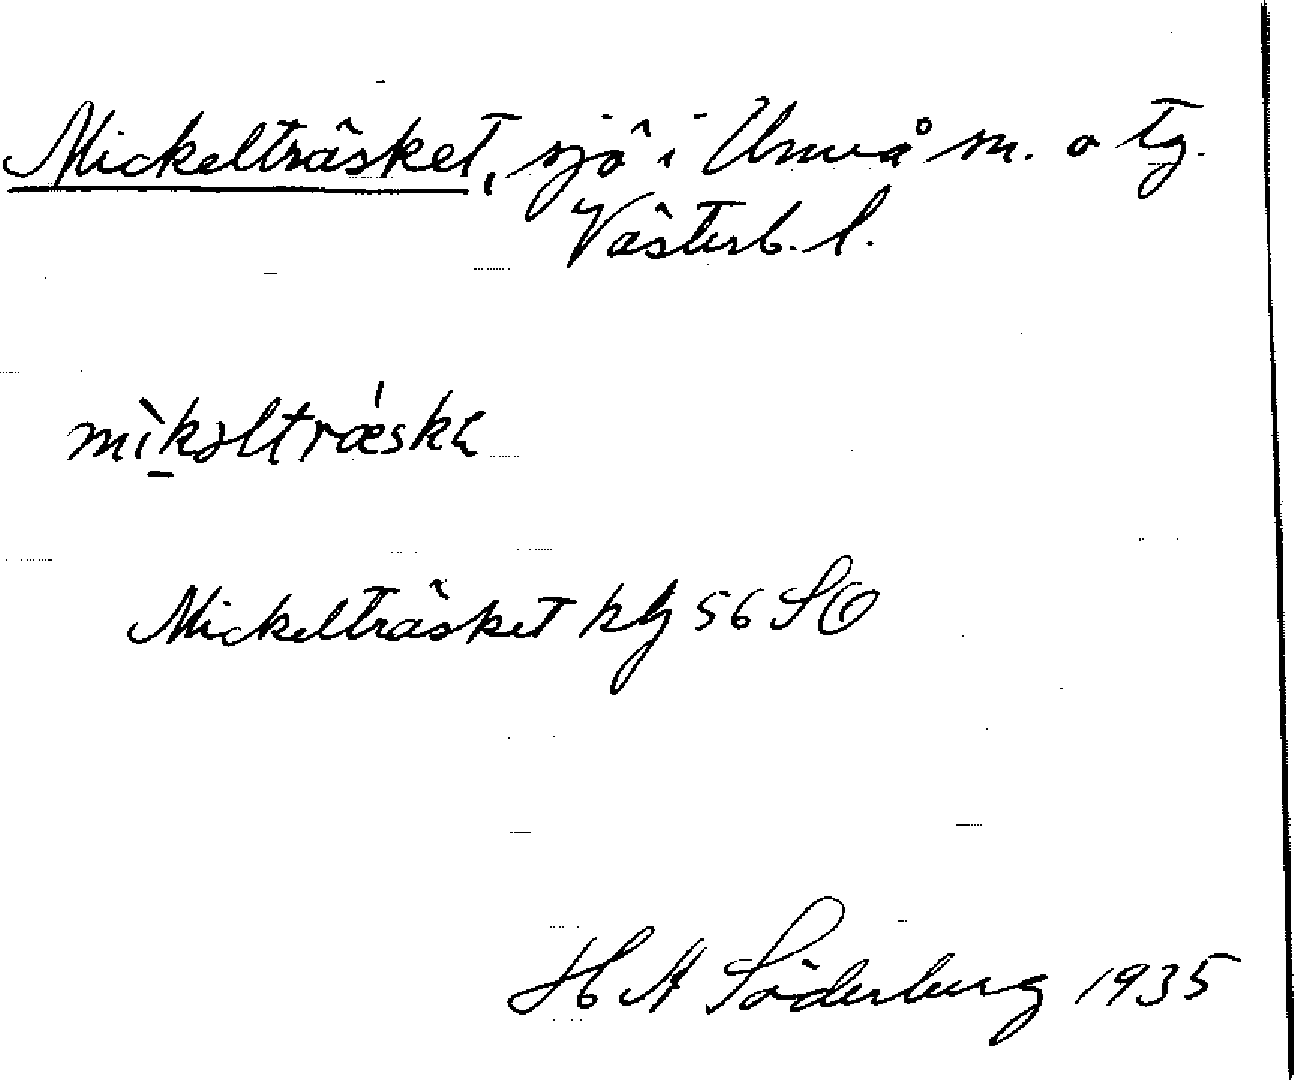 Mickelträsket, sjö i Umeå sn. o tg.
Västerb. l.
mìkəltrǽskɩ
Mickelträsket kbl 56 SÖ
H A Söderberg 1935